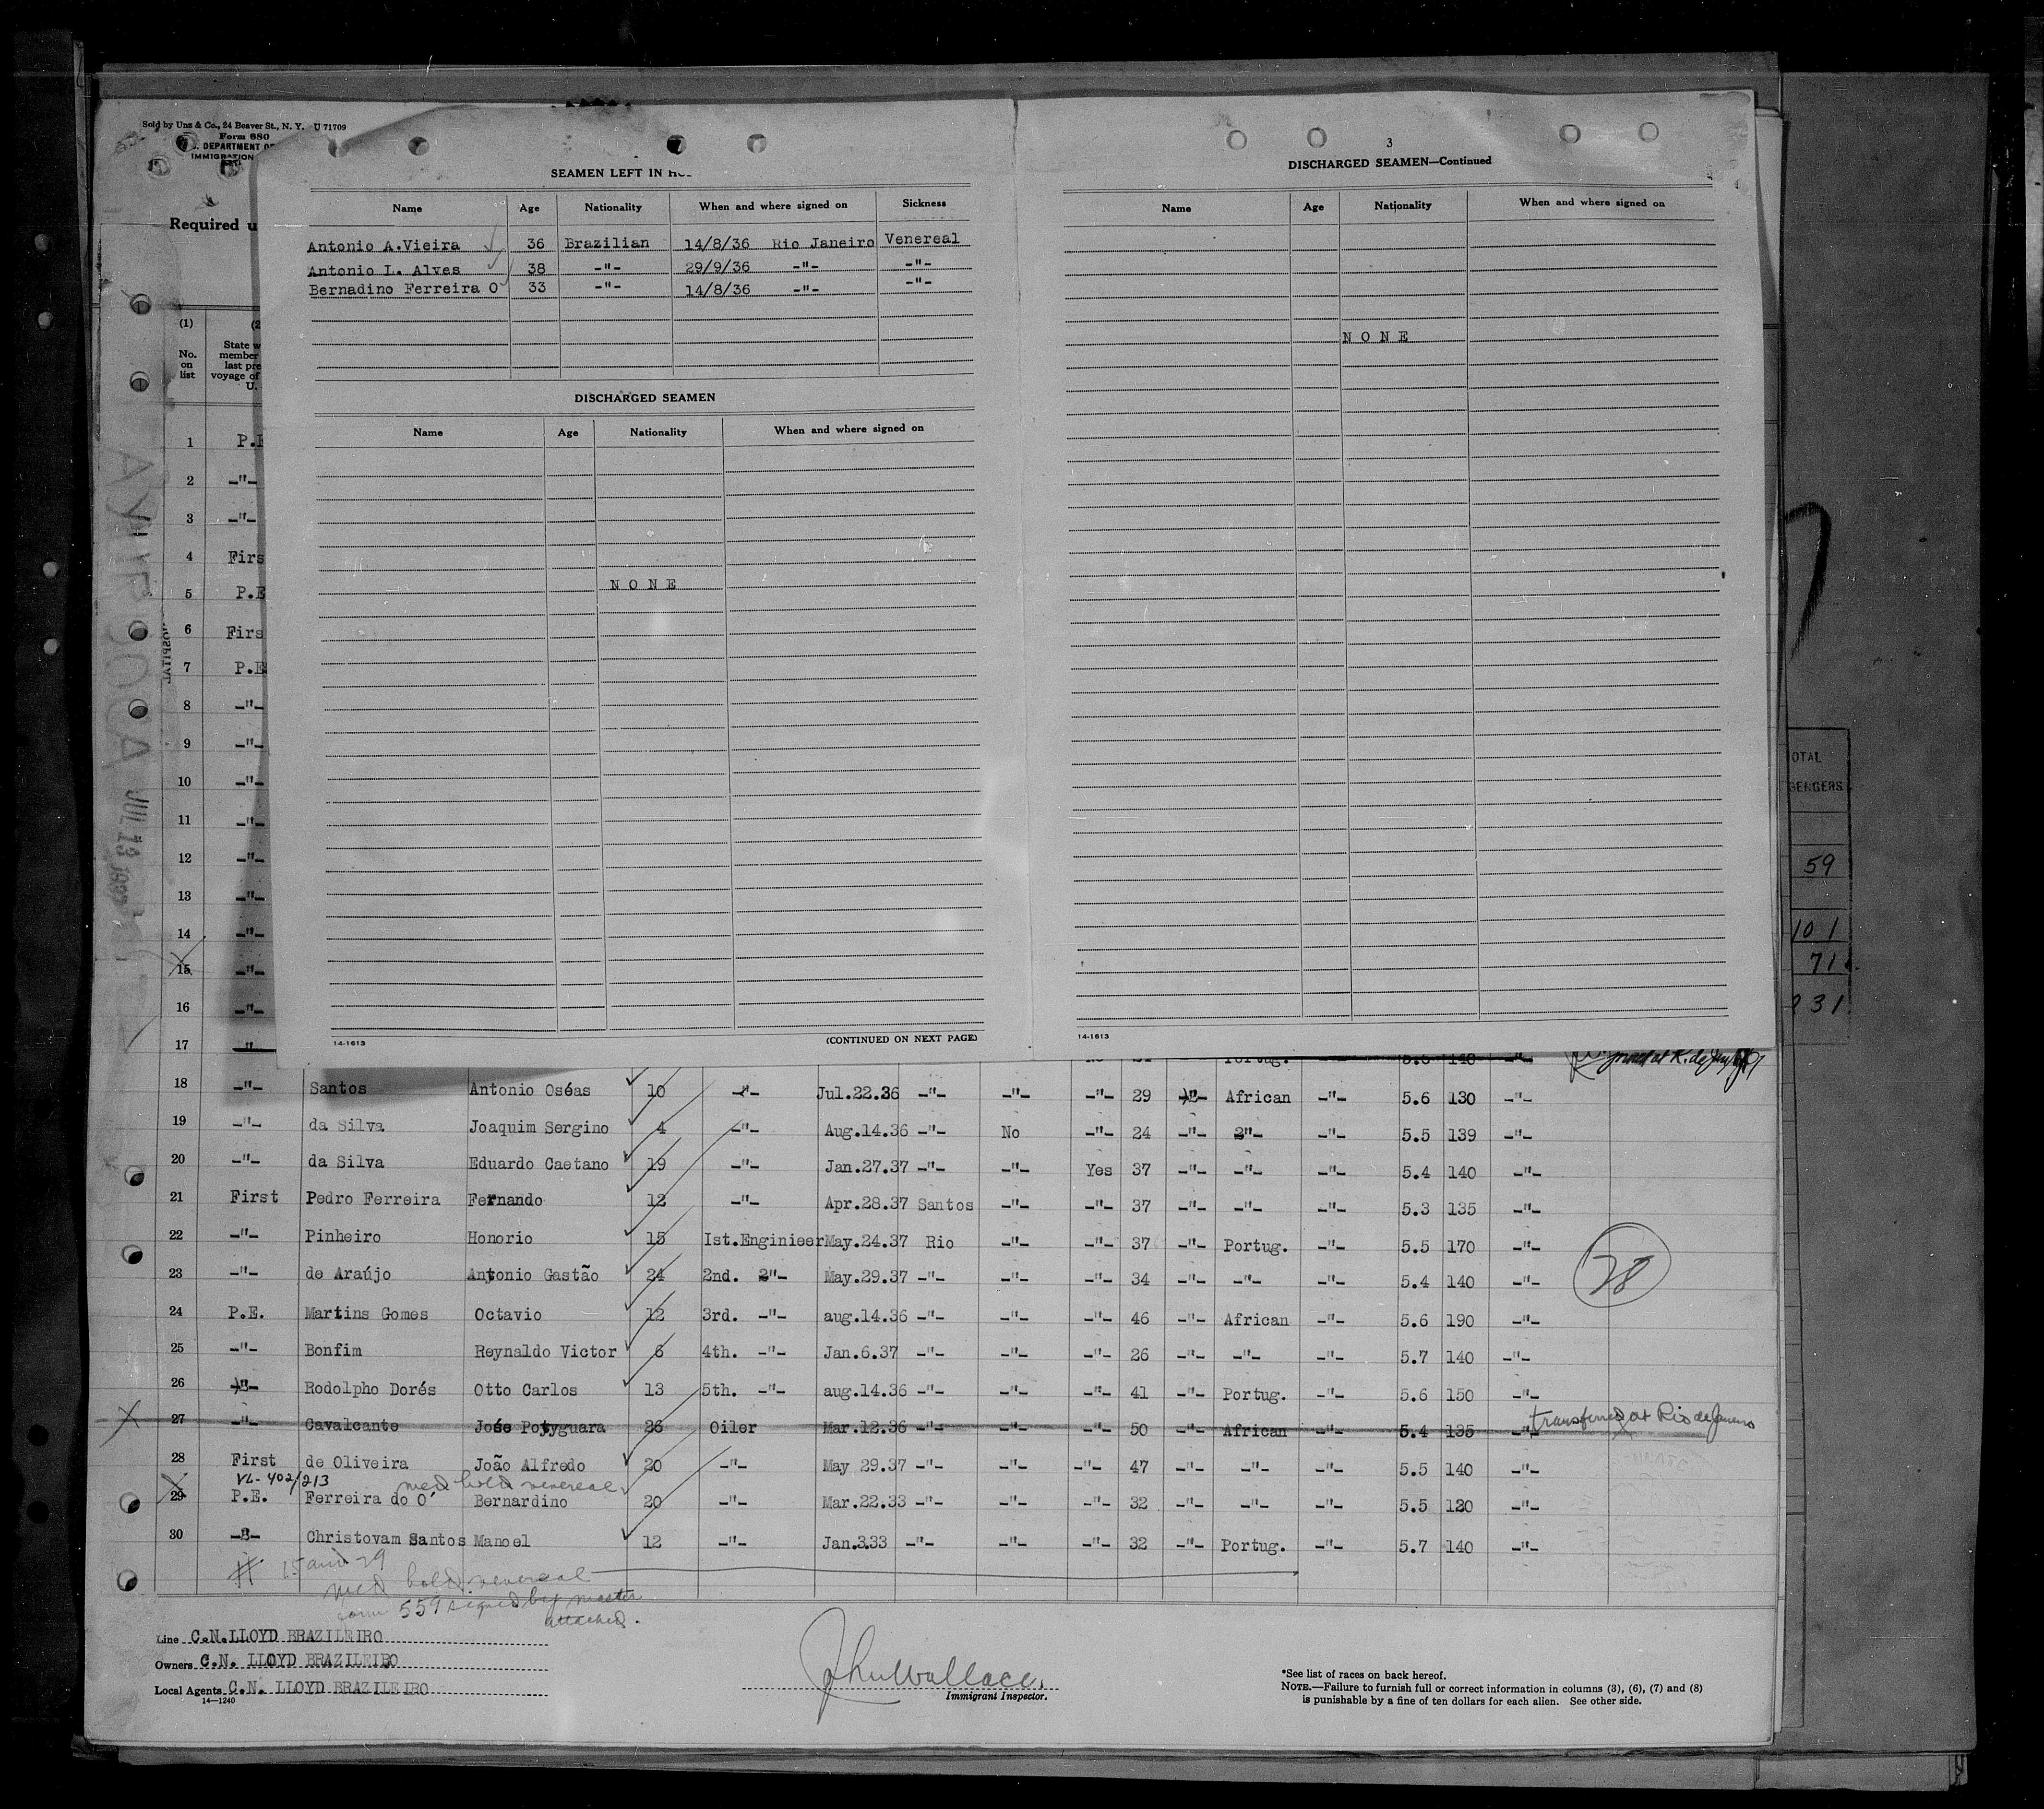 Sold by Unz & Co., 24 Beaver St., N. Y. U 71709
Form 680
DEPARTMENT OF
IMMIGRATION
Required u
SEAMEN LEFT IN
Name Age Nationality When and where signed on Sickness
Antonio A.Vieira 36 Brazilian 14/8/36 Rio Janeiro Venereal
Antonio L. Alves 38 -"- 29/9/36 -"- -"-
Bernadino Ferreira O 33 -"- 14/8/36 -"- -"-
DISCHARGED SEAMEN
Name Age Nationality When and where signed on
N O N E
14-1613 (CONTINUED ON NEXT PAGE)
3
DISCHARGED SEAMEN—Continued
Name Age Nationality When and where signed on
N O N E
14-1613
(1) (2
No. on list
State w
member
last pre
voyage of
U.
1 P.E
2 -"-
3 -"-
4 Firs
5 P.E
6 Firs
7 P.E
8 -"-
9 -"-
10 -"-
11 -"-
12 -"-
13 -"-
14 -"-
15 -"-
16 -"-
17 -"-
JUL 13
18 -"- Santos Antonio Oséas 10 -"- Jul.22.36 -"- -"- -"- 29 -"- African -"- 5.6 130 -"-
19 -"- da Silva Joaquim Sergino 4 -"- Aug.14.36 -"- No -"- 24 -"- -"- -"- 5.5 139 -"-
20 -"- da Silva Eduardo Caetano 19 -"- Jan.27.37 -"- -"- Yes 37 -"- -"- -"- 5.4 140 -"-
21 First Pedro Ferreira Fernando 12 -"- Apr.28.37 Santos -"- -"- 37 -"- -"- -"- 5.3 135 -"-
22 -"- Pinheiro Honorio 15 Ist.Enginieer May.24.37 Rio -"- -"- 37 -"- Portug. -"- 5.5 170 -"-
23 -"- de Araújo Antonio Gastão 24 2nd. -"- May.29.37 -"- -"- -"- 34 -"- -"- -"- 5.4 140 -"-
78
24 P.E. Martins Gomes Octavio 12 3rd. -"- aug.14.36 -"- -"- -"- 46 -"- African -"- 5.6 190 -"-
25 -"- Bonfim Reynaldo Victor 6 4th. -"- Jan.6.37 -"- -"- -"- 26 -"- -"- -"- 5.7 140 -"-
26 -"- Rodolpho Dorés Otto Carlos 13 5th. -"- aug.14.36 -"- -"- -"- 41 -"- Portug. -"- 5.6 150 -"-
27 -"- Cavalcante José Potyguara 26 Oiler Mar.12.36 -"- -"- -"- 50 -"- African -"- 5.4 135 -"- transferred at Rio de Janeiro
28 First de Oliveira João Alfredo 20 -"- May 29.37 -"- -"- -"- 47 -"- -"- -"- 5.5 140 -"-
VL-402/213 med hold venereal
29 P.E. Ferreira do O' Bernardino 20 -"- Mar.22.33 -"- -"- -"- 32 -"- -"- -"- 5.5 120 -"-
30 -"- Christovam Santos Manoel 12 -"- Jan.3.33 -"- -"- -"- 32 -"- Portug. -"- 5.7 140 -"-
# 15 and 29
med hold venereal
form 559 signed by master
attached.
Line C.N.LLOYD BRAZILEIRO
Owners C.N. LLOYD BRAZILEIRO
Local Agents C.N. LLOYD BRAZILEIRO
14—1240
John Wallace.
Immigrant Inspector.
*See list of races on back hereof.
NOTE.—Failure to furnish full or correct information in columns (3), (6), (7) and (8)
is punishable by a fine of ten dollars for each alien. See other side.
OTAL
SENGERS
59
101
71
31